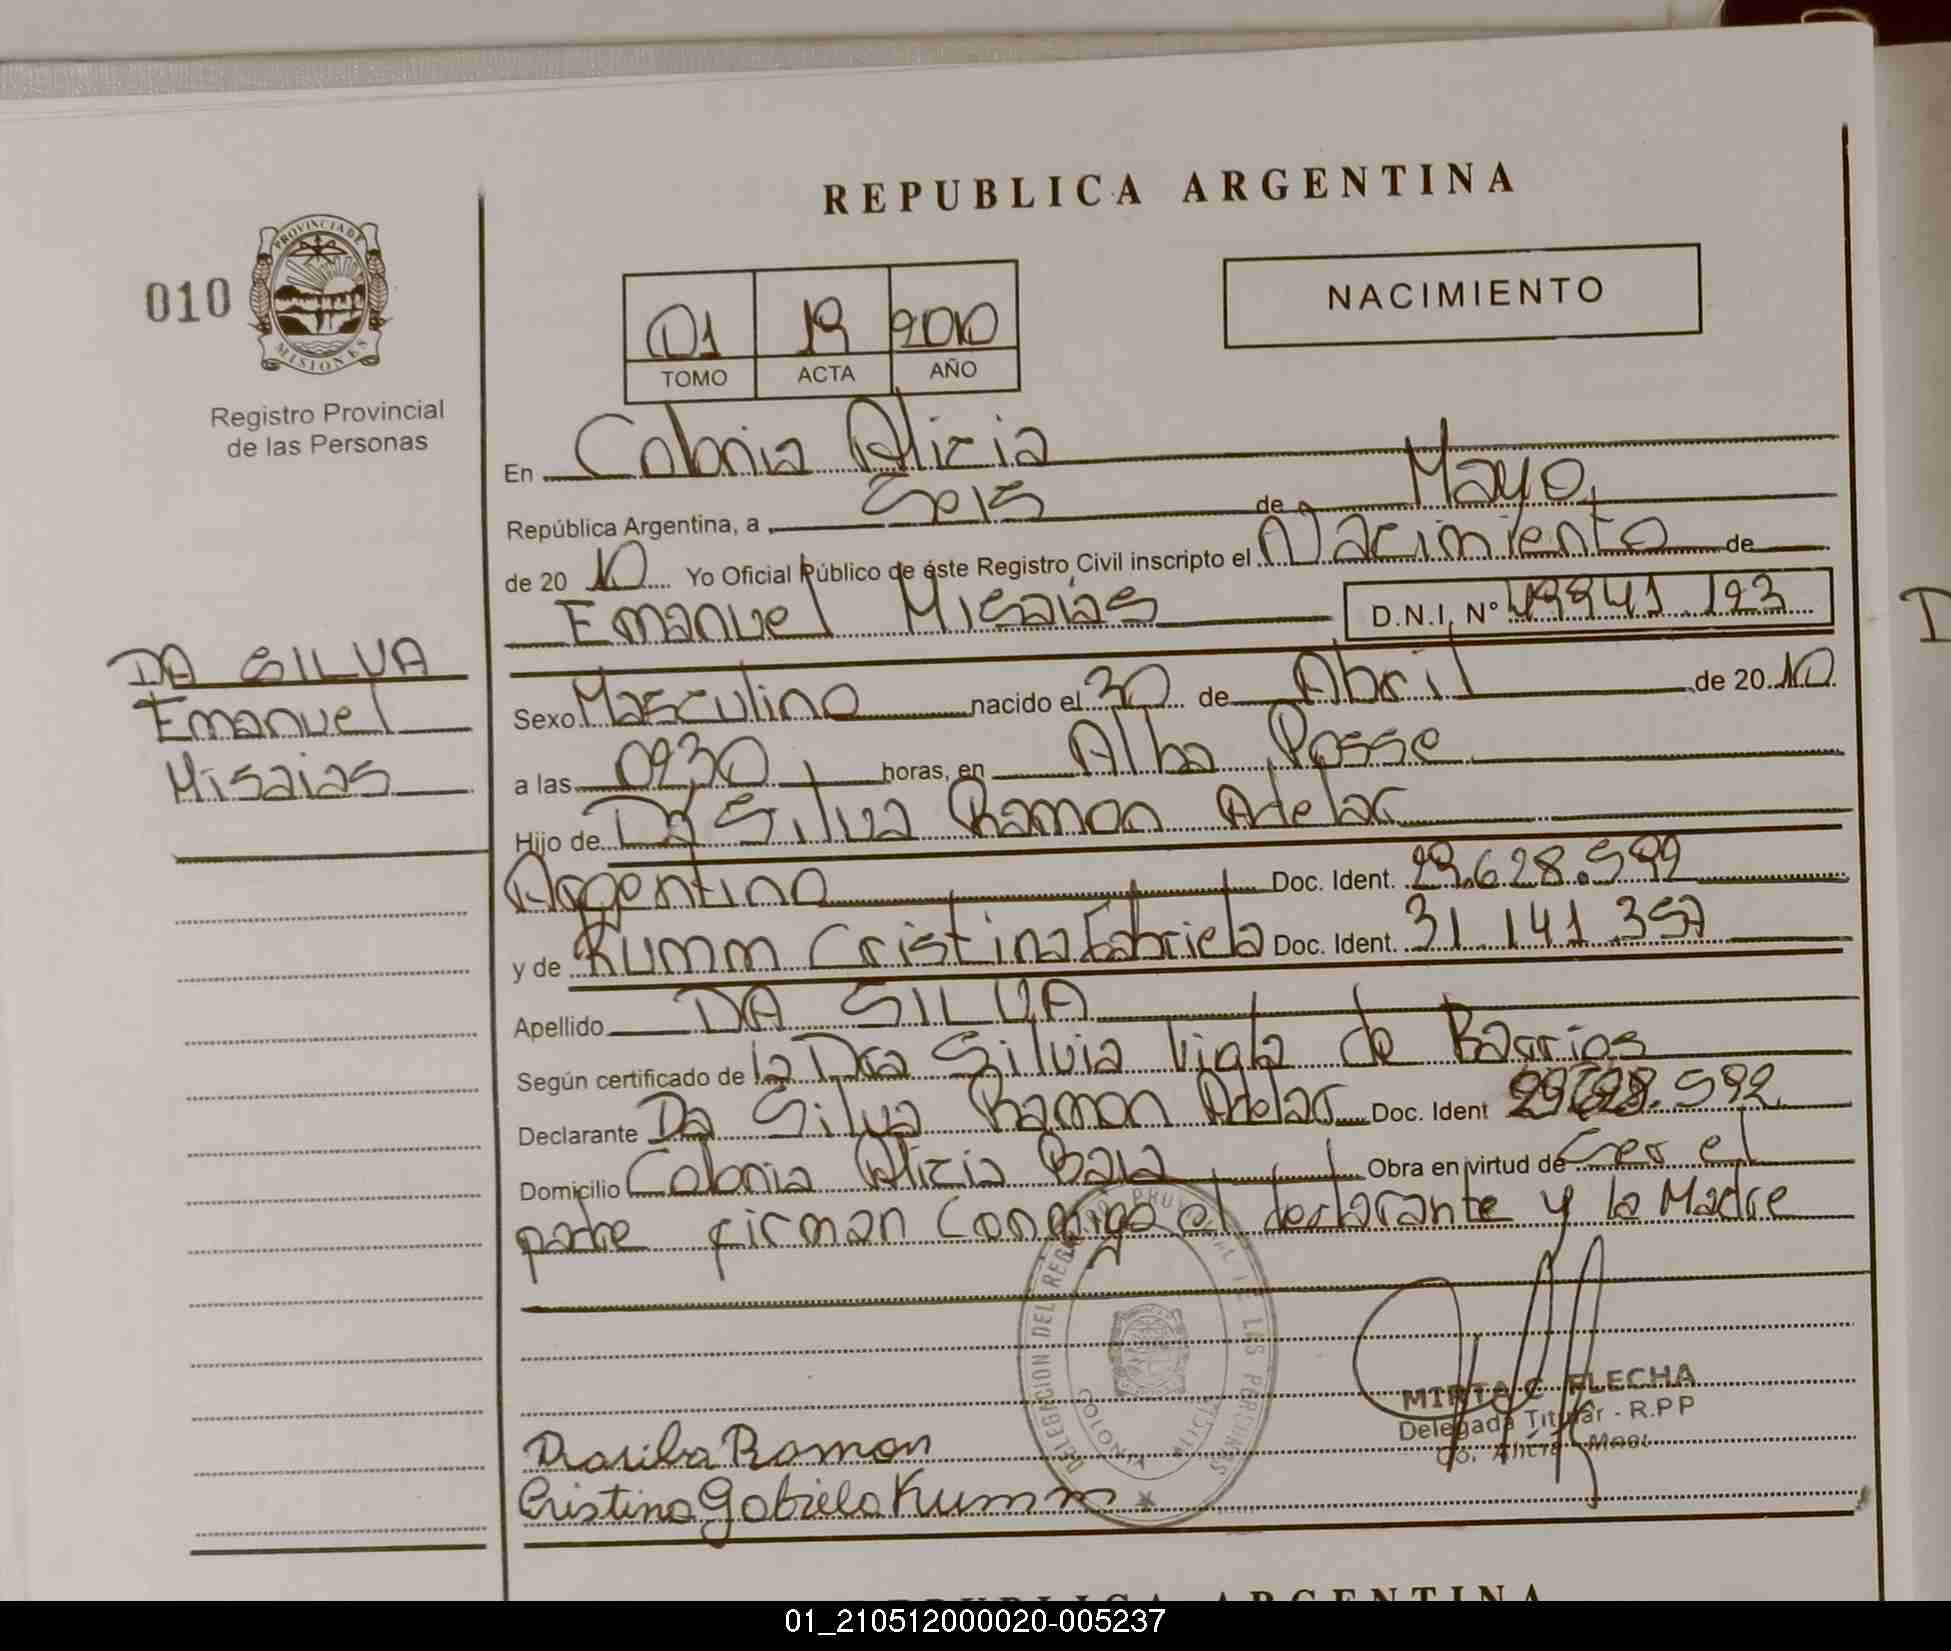 REPUBLICA ARGENTINA
010
PROVINCIA DE
MISIONES
Registro Provincial
de las Personas
01 19 2010
TOMO ACTA AÑO
NACIMIENTO
En Colonia Alicia
República Argentina, a Seis de Mayo
de 20 10 Yo Oficial Público de éste Registro Civil inscripto el Nacimiento de
Emanuel Misaias D.N.I. Nº
DA SILVA
Emanuel
Misaias
Sexo Masculino nacido el 30 de Abril de 20 10
a las 0930 horas, en Alba Posse
Hijo de Da Silva Ramon Adelar
Argentino Doc. Ident. 29.628.592
y de Kumm Cristina Gabriela Doc. Ident. 31 141 357
Apellido DA SILVA
Según certificado de la Dra Silvia de Barrios
Declarante Da Silva Ramon Adelar Doc. Ident 29628.592
Domicilio Colonia Alicia Baja Obra en virtud de ser el
padre firman conmigo el declarante y la Madre
DELEGACION DEL REGISTRO PROVINCIAL DE LAS PERSONAS
COLONIA ALICIA
MIRTA C. FLECHA
Delegada Titular - R.P.P
Co. Alicia - Mnes.
Dasilva Ramon
Cristina Gabriela Kumm
REPUBLICA ARGENTINA
01_210512000020-005237